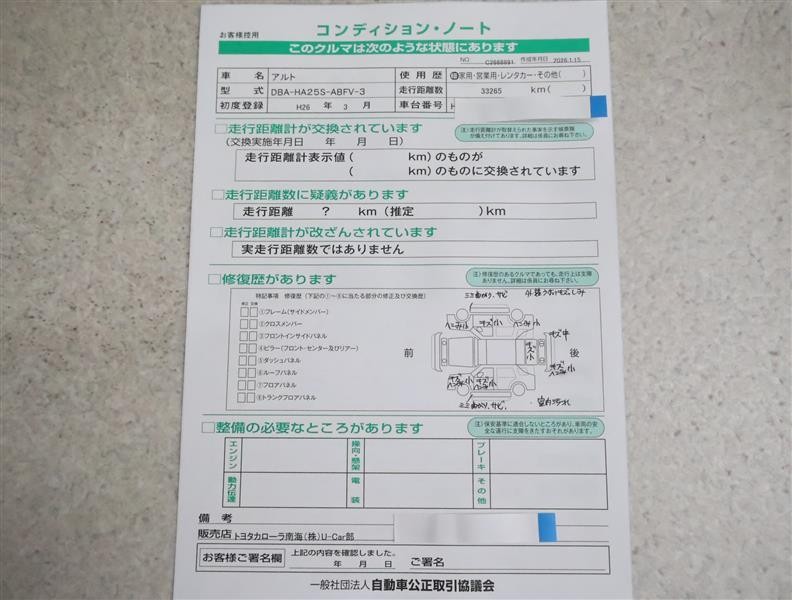 お客様控用
コンディション・ノート
このクルマは次のような状態にあります
NO. C2668891 作成年月日 2026.1.15
車名 アルト 使用歴 自家用・営業用・レンタカー・その他( )
型式 DBA-HA25S-ABFV-3 走行距離数 33265 km( )
初度登録 H26 年 3 月 車台番号 H
□走行距離計が交換されています
注)走行距離計が取替えられた事実を示す記録簿類が備え付けてあります。詳細は係員にお尋ね下さい。
(交換実施年月日 年 月 日)
走行距離計表示値( km)のものが
( km)のものに交換されています
□走行距離数に疑義があります
走行距離 ? km(推定 )km
□走行距離計が改ざんされています
実走行距離数ではありません
□修復歴があります
注)修復歴のあるクルマであっても、走行上は支障ありません。詳細は係員にお尋ね下さい。
特記事項 修復歴(下記の①~⑧に当たる部分の修正及び交換歴)
修正 交換
①フレーム(サイドメンバー)
②クロスメンバー
③フロントインサイドパネル
④ピラー(フロント・センター及びリアー)
⑤ダッシュパネル
⑥ルーフパネル
⑦フロアパネル
⑧トランクフロアパネル
前
後
ミミ曲がり、サビ
外装うすキズ、しみ
ヘコみ小
キズ小
ヘコみ小
キズ中
キズ小
キズ小
ミミ曲がり、サビ、
室内汚れ
□整備の必要なところがあります
注)保安基準に適合しないところがあり、車両の安全な運行に支障をきたすおそれがあります。
エンジン 操向・懸架 ブレーキ
動力伝達 電装 その他
備考
販売店 トヨタカローラ南海(株)U-Car部
お客様ご署名欄 上記の内容を確認しました。
年 月 日 ご署名
一般社団法人 自動車公正取引協議会